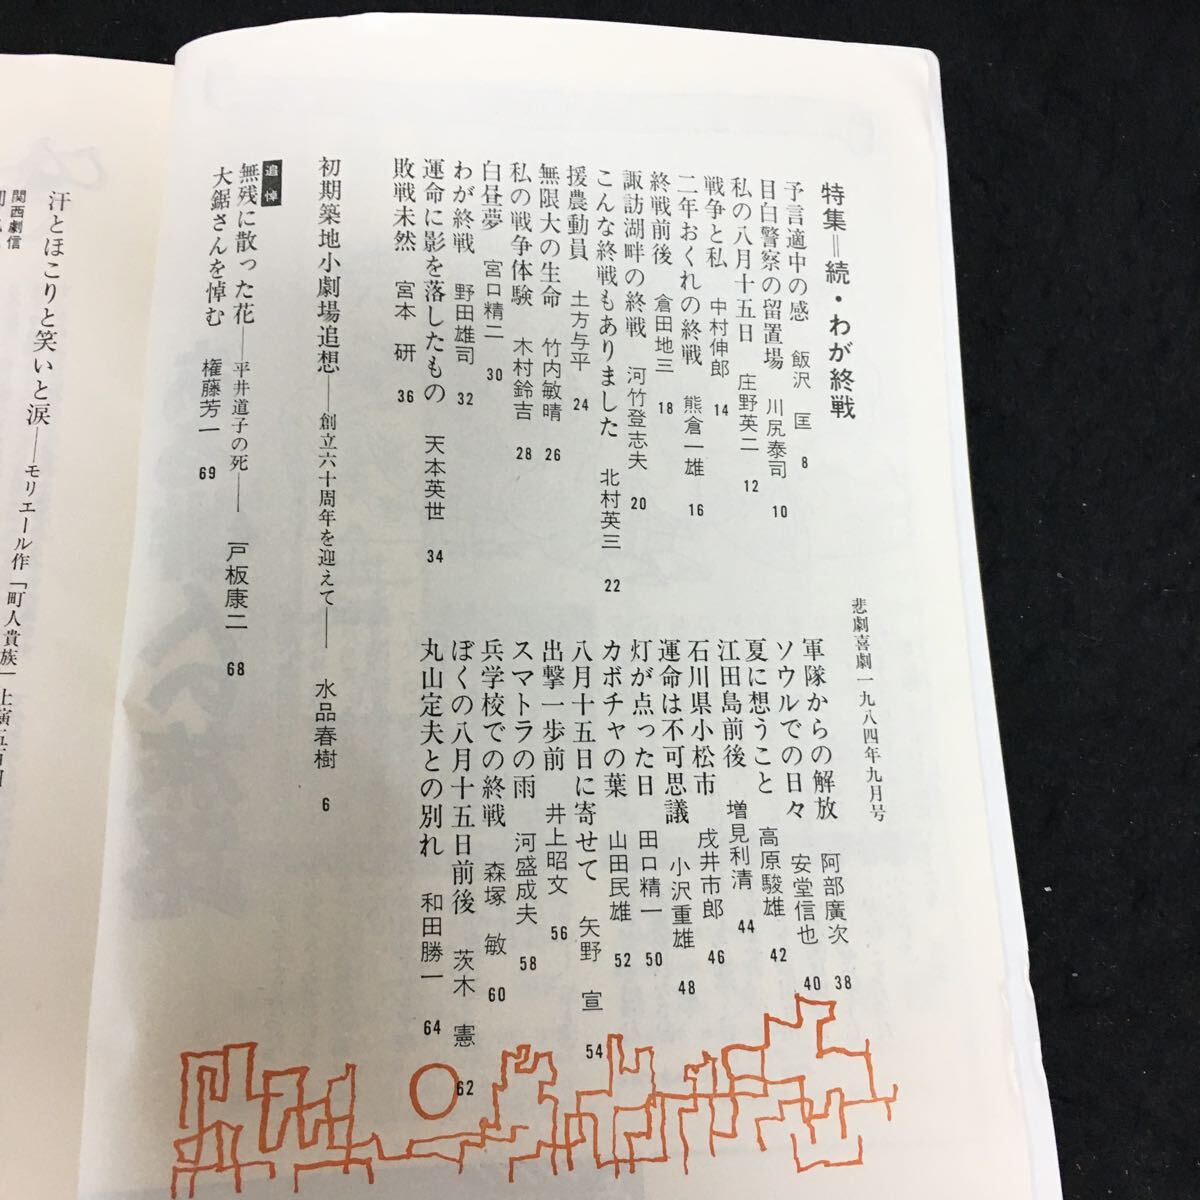 悲劇喜劇一九八四年九月号
特集＝続・わが終戦
予言適中の感 飯沢 匡 8
目白警察の留置場 川尻泰司 10
私の八月十五日 庄野英二 12
戦争と私 中村伸郎 14
二年おくれの終戦 熊倉一雄 16
終戦前後 倉田地三 18
諏訪湖畔の終戦 河竹登志夫 20
こんな終戦もありました 北村英三 22
援農動員 土方与平 24
無限大の生命 竹内敏晴 26
私の戦争体験 木村鈴吉 28
白昼夢 宮口精二 30
わが終戦 野田雄司 32
運命に影を落したもの 天本英世 34
敗戦未然 宮本 研 36
軍隊からの解放 阿部廣次 38
ソウルでの日々 安堂信也 40
夏に想うこと 高原駿雄 42
江田島前後 増見利清 44
石川県小松市 戌井市郎 46
運命は不可思議 小沢重雄 48
灯が点った日 田口精一 50
カボチャの葉 山田民雄 52
八月十五日に寄せて 矢野 宣 54
出撃一歩前 井上昭文 56
スマトラの雨 河盛成夫 58
兵学校での終戦 森塚 敏 60
ぼくの八月十五日前後 茨木 憲 62
丸山定夫との別れ 和田勝一 64
初期築地小劇場追想——創立六十周年を迎えて—— 水品春樹 6
追悼
無残に散った花——平井道子の死—— 戸板康二 68
大鋸さんを悼む 権藤芳一 69
汗とほこりと笑いと涙——モリエール作「町人貴族」上演
関西劇信